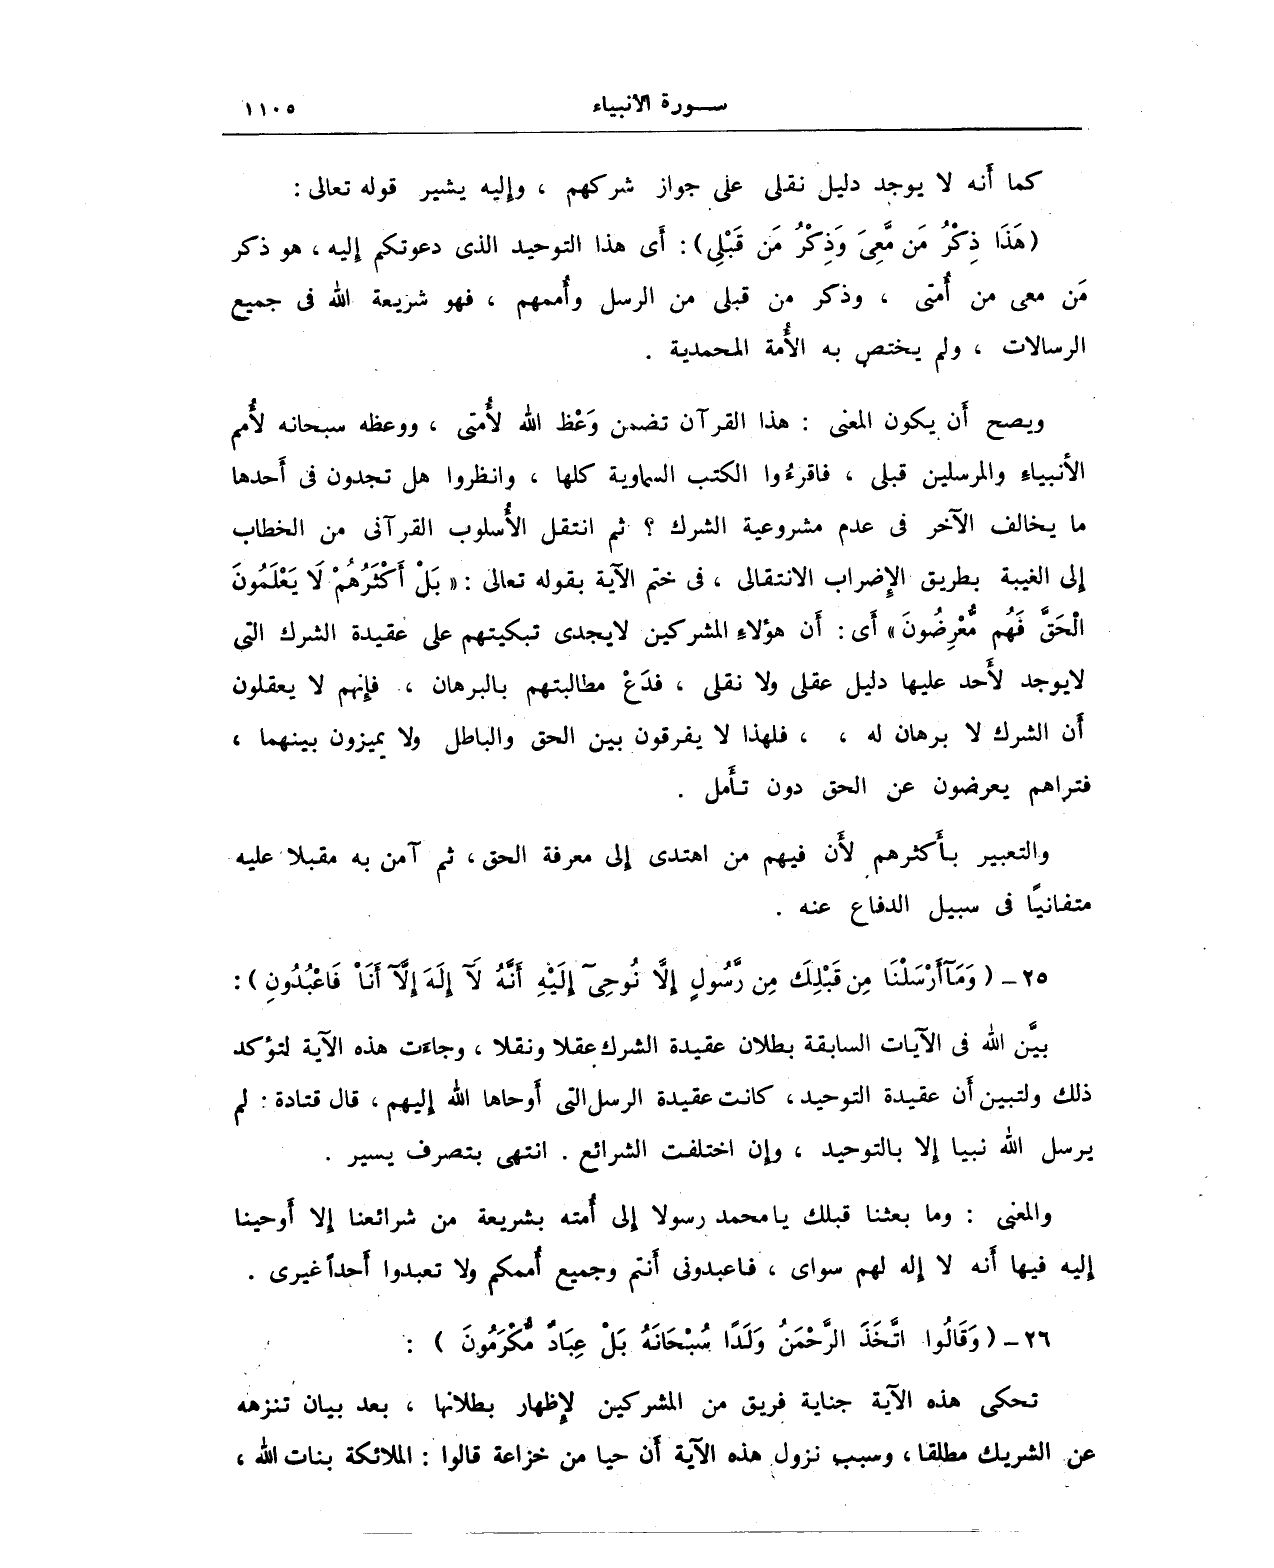 سورة الانبياء ١١٠٥
كما أَنه لا يوجد دليل نقلى على جواز شركهم ، وإليه يشير قوله تعالى :
(هَذَا ذِكْرُ مَن مَّعِىَ وَذِكْرُ مَن قَبْلِى) : أَى هذا التوحيد الذى دعوتكم إليه ، هو ذكر
مَن معى من أُمتى ، وذكر من قبلى من الرسل وأُممهم ، فهو شريعة الله فى جميع
الرسالات ، ولم يختص به الأُمة المحمدية .
ويصح أَن يكون المعنى : هذا القرآن تضمن وَعْظ الله لأُمتى ، ووعظه سبحانه لأُمم
الأَنبياء والمرسلين قبلى ، فاقرءُوا الكتب السماوية كلها ، وانظروا هل تجدون فى أَحدها
ما يخالف الآخر فى عدم مشروعية الشرك ؟ ثم انتقل الأُسلوب القرآنى من الخطاب
إلى الغيبة بطريق الإِضراب الانتقالى ، فى ختم الآية بقوله تعالى : « بَلْ أَكْثَرُهُمْ لَا يَعْلَمُونَ
الْحَقَّ فَهُم مُّعْرِضُونَ » أَى : أَن هؤلاءِ المشركين لايجدى تبكيتهم على عقيدة الشرك التى
لايوجد لأَحد عليها دليل عقلى ولا نقلى ، فدَعْ مطالبتهم بالبرهان ، فإنهم لا يعقلون
أَن الشرك لا برهان له ، ، فلهذا لا يفرقون بين الحق والباطل ولا يميزون بينهما ،
فتراهم يعرضون عن الحق دون تأَمل .
والتعبير بأَكثرهم لأَن فيهم من اهتدى إلى معرفة الحق ، ثم آمن به مقبلا عليه
متفانيًا فى سبيل الدفاع عنه .
٢٥ – ( وَمَآ أَرْسَلْنَا مِن قَبْلِكَ مِن رَّسُولٍ إِلَّا نُوحِىٓ إِلَيْهِ أَنَّهُ لَآ إِلَهَ إِلَّآ أَنَا۠ فَاعْبُدُونِ ) :
بيَّن الله فى الآيات السابقة بطلان عقيدة الشرك عقلا ونقلا ، وجاءَت هذه الآية لتؤكد
ذلك ولتبين أَن عقيدة التوحيد ، كانت عقيدة الرسل التى أَوحاها الله إليهم ، قال قتادة : لم
يرسل الله نبيا إلا بالتوحيد ، وإن اختلفت الشرائع . انتهى بتصرف يسير .
والمعنى : وما بعثنا قبلك يا محمد رسولا إلى أُمته بشريعة من شرائعنا إلا أَوحينا
إليه فيها أَنه لا إله لهم سواى ، فاعبدونى أَنتم وجميع أُممكم ولا تعبدوا أَحداً غيرى .
٢٦ – ( وَقَالُوا اتَّخَذَ الرَّحْمَنُ وَلَدًا سُبْحَانَهُ بَلْ عِبَادٌ مُّكْرَمُونَ ) :
تحكى هذه الآية جناية فريق من المشركين لإِظهار بطلانها ، بعد بيان تنزهه
عن الشريك مطلقا ، وسبب نزول هذه الآية أَن حيا من خزاعة قالوا : الملائكة بنات الله ،